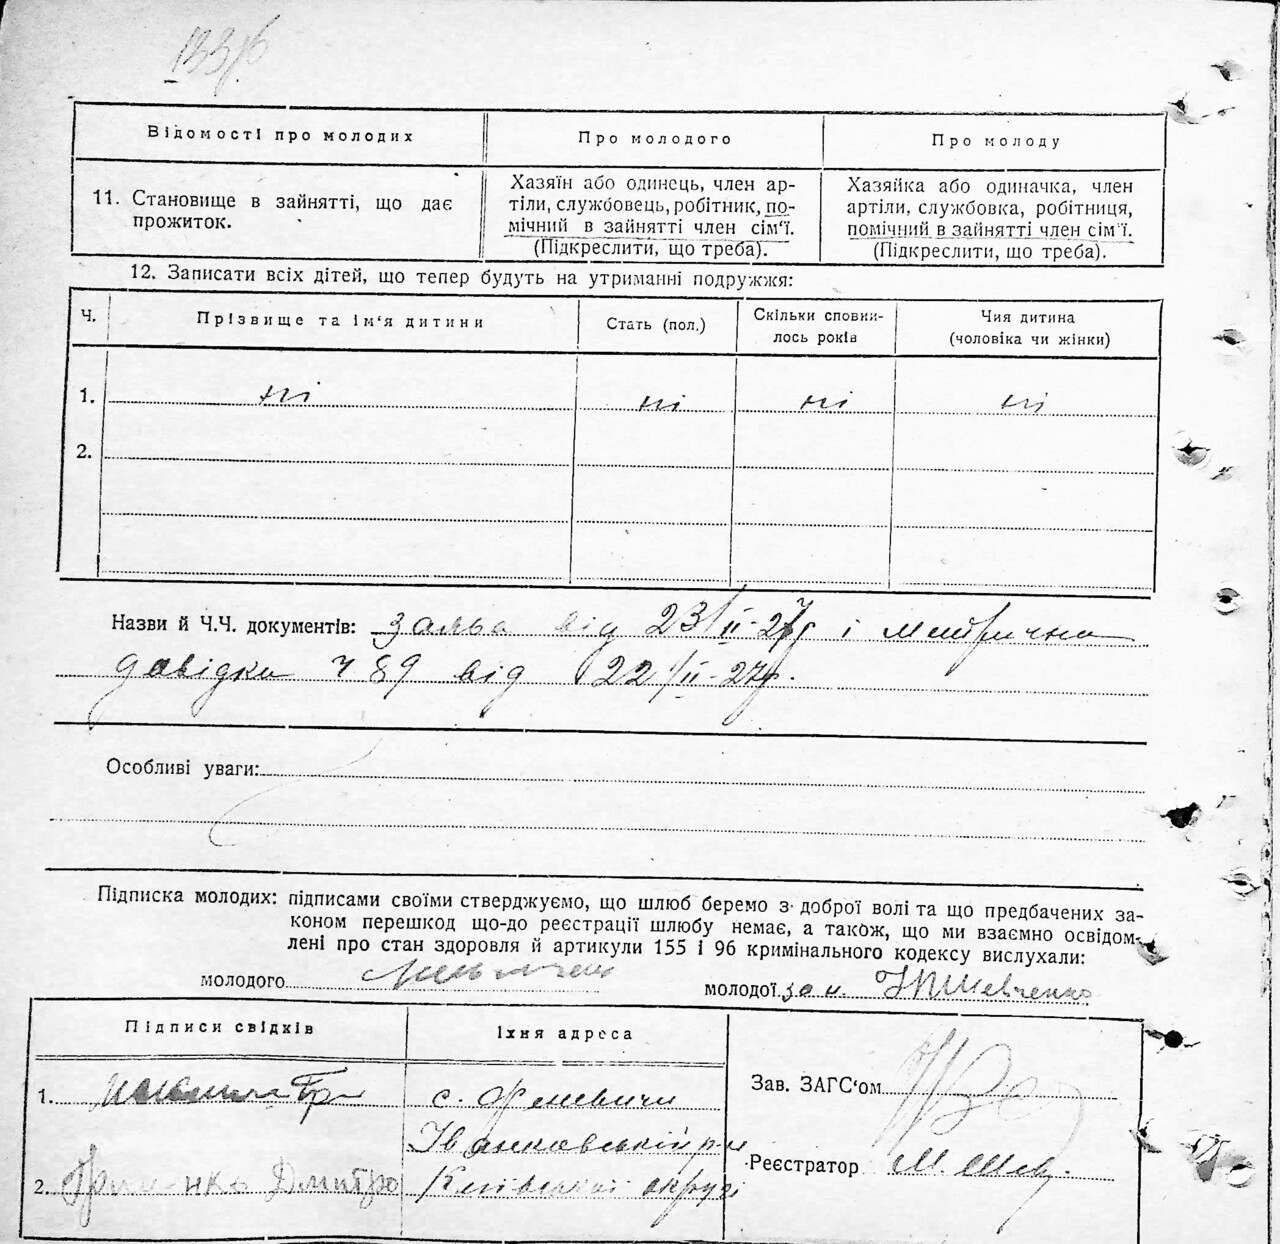 133/б
Відомості про молодих
Про молодого
Про молоду
11. Становище в зайнятті, що дає
прожиток.
Хазяїн або одинець, член ар-
тіли, службовець, робітник, по-
мічний в зайнятті член сім'ї.
(Підкреслити, що треба).
Хазяйка або одиначка, член
артіли, службовка, робітниця,
помічний в зайнятті член сім'ї.
(Підкреслити, що треба).
12. Записати всіх дітей, що тепер будуть на утриманні подружжя:
Ч.
Прізвище та ім'я дитини
Стать (пол.)
Скільки сповни-
лось років
Чия дитина
(чоловіка чи жінки)
1. ні ні ні ні
2.
Назви й Ч.Ч. документів: заява від 23/II-27р і метрична
довідка ч 89 від 22/II-27р.
Особливі уваги:
Підписка молодих: підписами своїми стверджуємо, що шлюб беремо з доброї волі та що предбачених за-
коном перешкод що-до реєстрації шлюбу немає, а також, що ми взаємно освідом-
лені про стан здоровля й артикули 155 і 96 кримінального кодексу вислухали:
молодого
молодої за н. Шевченко
Підписи свідків
Їхня адреса
1.
с.
Іванківській р-н
Київської округи
2. Дмитро
Зав. ЗАГС'ом
Реєстратор М. Шев.